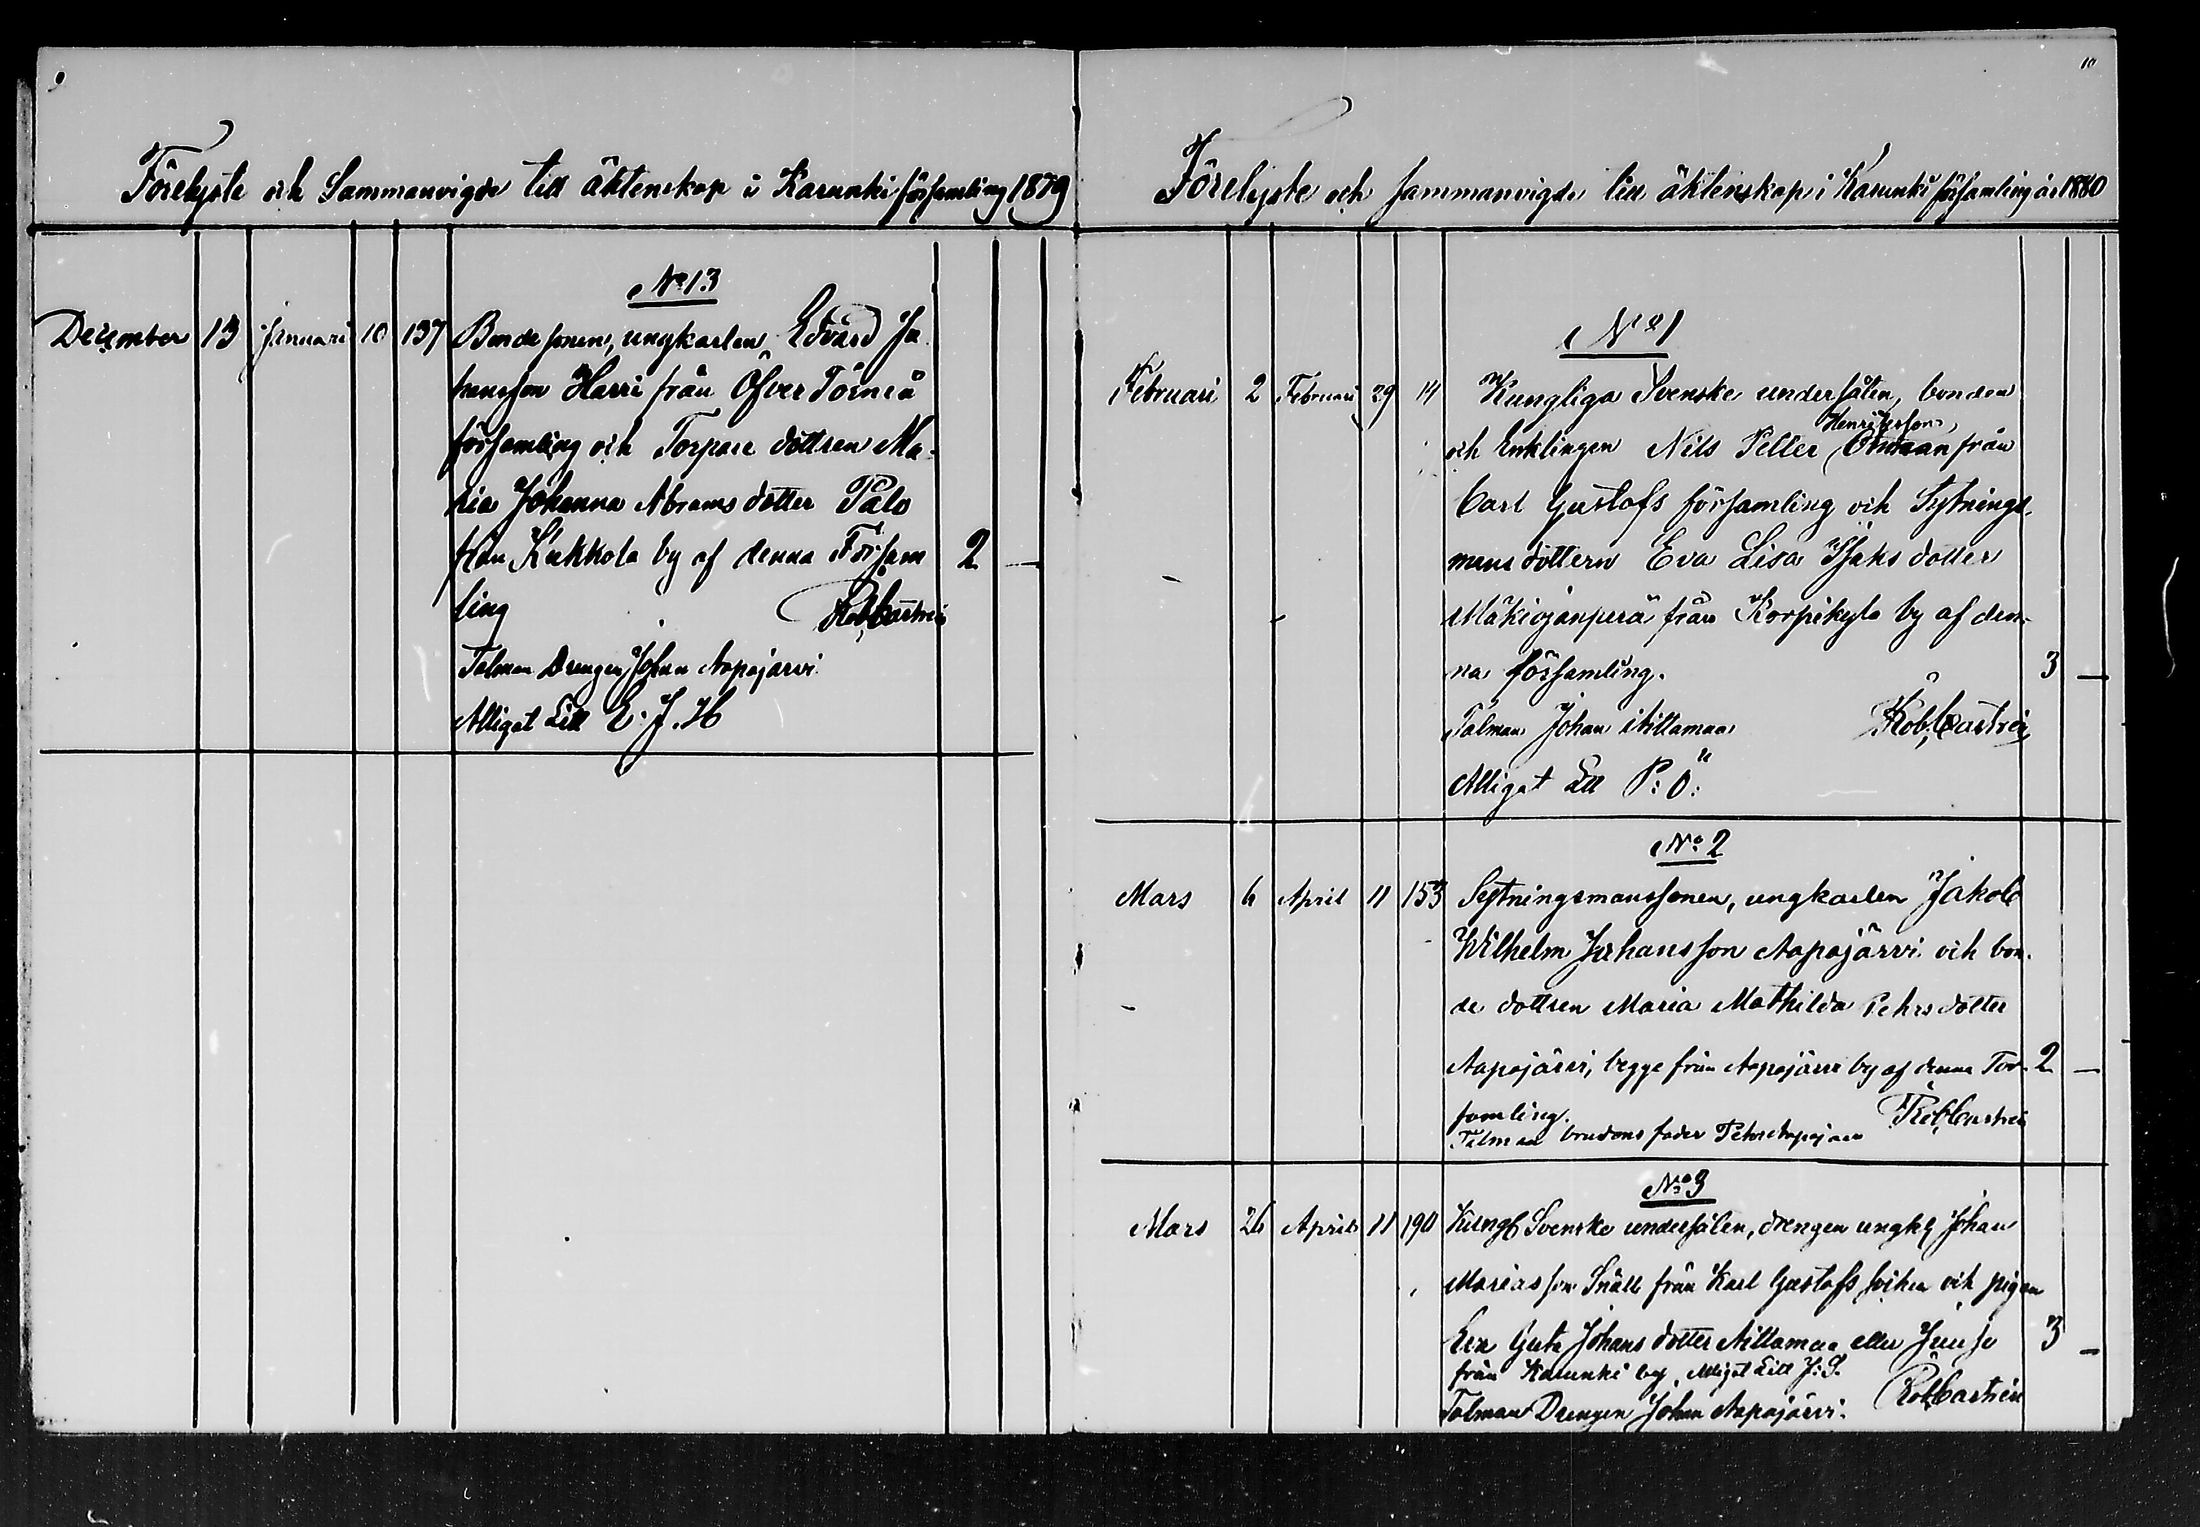 9
Förelyste och Sammanvigde till äktenskap i Karunki församling 1879
No 13
December 13 Januari 10 137 Bondesonen, ungkarlen Edvard Jo
hansson Harri från Öfver Torneå
församling och Torpare dottren Ma
ria Johanna Abrams dotter Palo
från Kukkola by af denna Försam 2 —
ling Rob Castrén
Talman Drengen Johan Aapajärvi
Alligat Litt E. J. H
10
Förelyste och sammanvigde till äktenskap i Karunki församling år 1880
No 1
Februari 2 Februari 29 14 Kungliga Svenske undersåten, bonden
Henriksson,
och Enklingen Nils Petter från
Carl Gustafs församling och Sytnings
mans dottern Eva Lisa Isaks dotter
Mäkiojanperä från Korpikylä by af den
na församling. 3 —
Talman Johan Rob Castrén
Alligat Litt P: Ö:
No 2
Mars 6 April 11 153 Sytningsmanssonen, ungkarlen Jakob
Wilhelm Johansson Aapajärvi och bon
de dottren Maria Mathilda Pehrs dotter
Aapajärvi, begge från Aapajärvi by af denna För 2 —
samling. Rob Castrén
Talman brudens fader Pehr Aapajärvi
No 3
Mars 26 April 11 190 Kungl Svenske undersåten, drengen ungk Johan
Mariasson Snäll från Karl Gustafs socken och pigan
Greta Johans dotter eller Juuso 3 —
från Karunki by, Alligat Litt J: S.
Talman Drengen Johan Aapajärvi. Rob Castrén